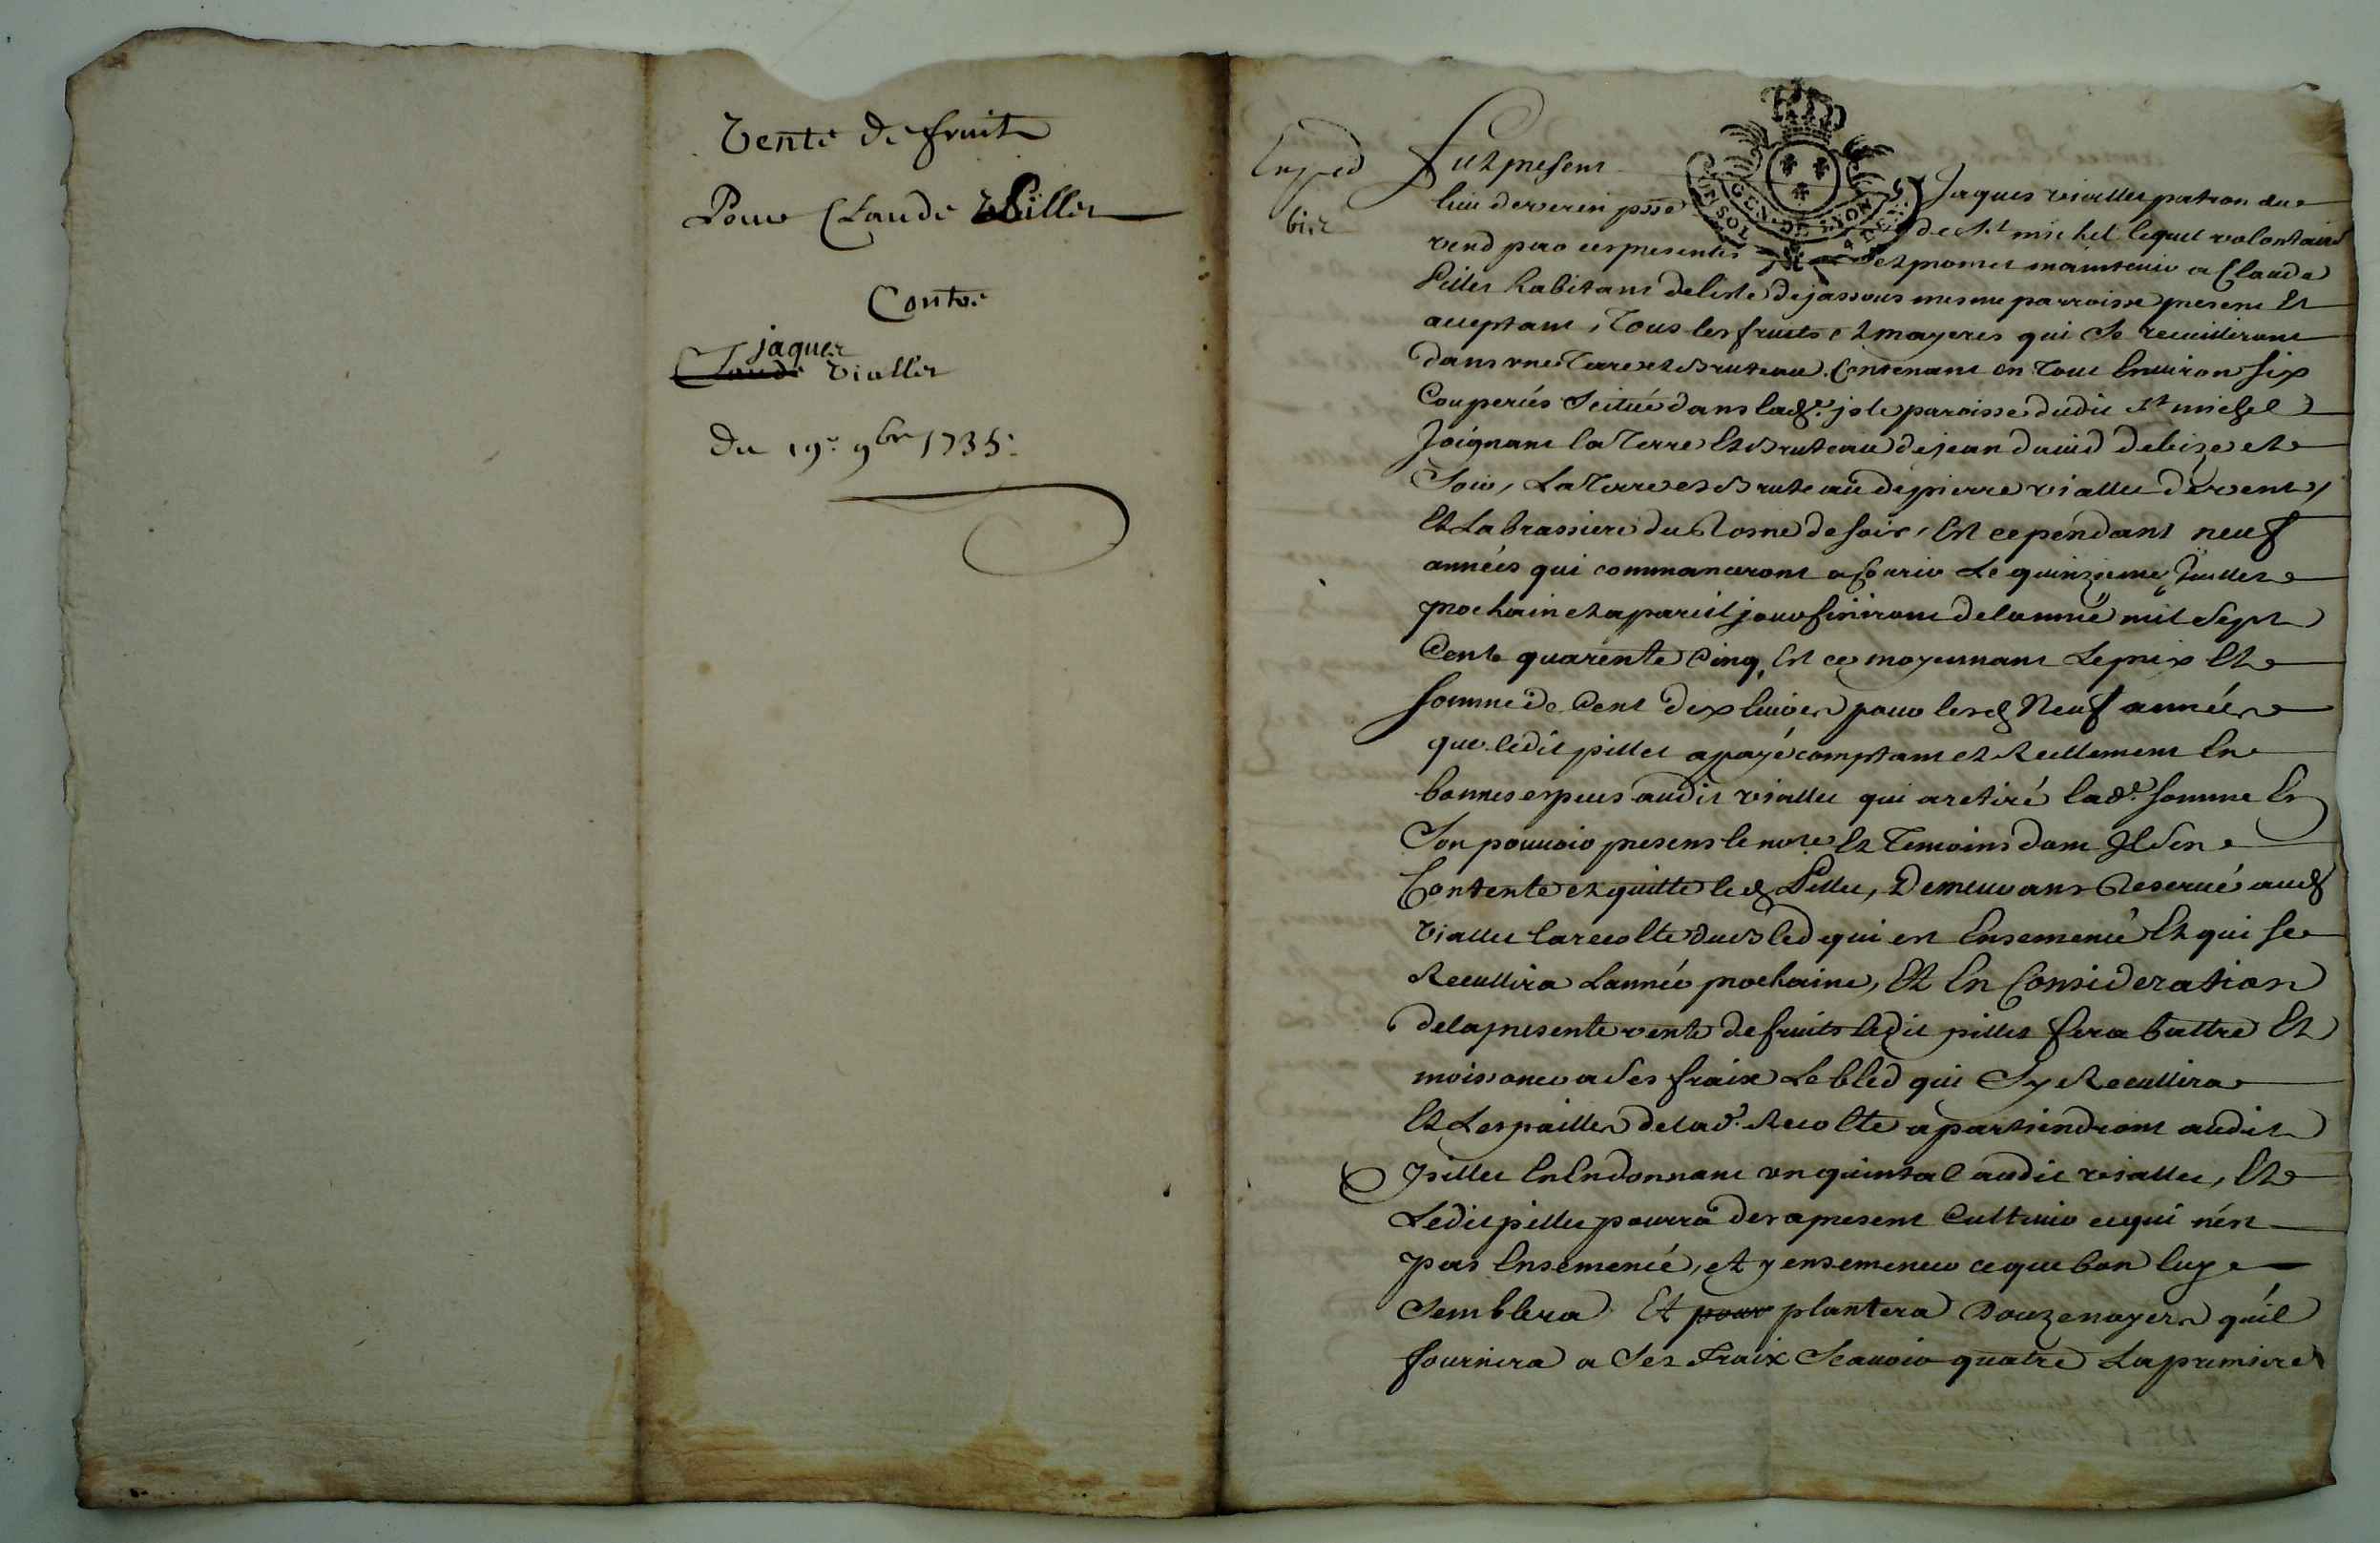 Vente de fruit
Pour Claude Pillet
Contre
jaques
Claude Viallet
Du 19e 9bre 1735.
Exped
bis
GEN. DE LYON
Fut present Jaques viallet patron du
lieu de verin psse de St michel lequel volontaire
vend par ces presentes et promet maintenir a Claude
Pillet habitant de lisle de jassoux mesme parroisse present Et
acceptant, Tous les fruits et mayeres qui Se recuilliront
dans une Terre et Bruteau Contenant en Tout Environ six
Couperées Scitué dans lade. jsle paroisse dudit st michel
Joignant la Terre Et Bruteau de jean david de bize et
Soir, La Terre et Bruteau de pierre viallet de vent,
Et La brassiere du Rosne de soir, Et ce pendant neuf
années qui commanceront a Courir Le quinzieme Juillet
prochain et a pareil jour finiront de lannée mil Sept
Cents quarente Cinq, Et ce moyennant Le prix Et
somme de Cent dix livres pour lesd Neuf années
que ledit pillet a payé comptant et Reellement En
bonnes especes audit viallet qui a retiré lade. somme En
Son pouvoir present le nore Et Temoins dont Il Sen
Contente et quitte led Pillet, Demeurant Reservé aud
Viallet la recolte du Bled qui est Ensemencé Et qui se
Recullira Lannée prochaine, Et En Consideration
de la presente vente de fruits ledit pillet fera battre Et
moissoner a Ses fraix Le bled qui Sy Recullira
Et Les pailles de lad. Recolte apartiendront audit
pillet En Endonnant un quintal audit viallet, Et
Ledit pillet pourra des apresent Cultiver ce qui n'est
pas Ensemencé, et y ensemencer ce que bon luy
Semblera Et pour plantera Douze noyers qu'il
fournira a Ses fraix Scavoir quatre La premiere